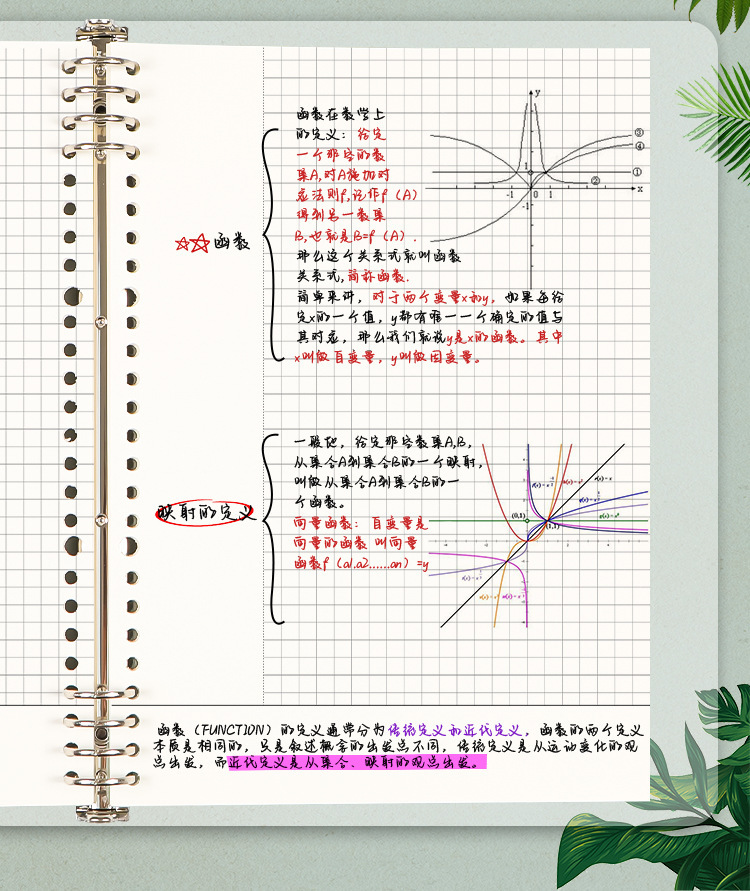 函数在数学上
的定义：给定
一个非空的数
集A,对A施加对
应法则f,记作f（A）
得到另一数集
B,也就是B=f（A）.
那么这个关系式就叫函数
关系式,简称函数.
简单来讲，对于两个变量x和y，如果每给
定x的一个值，y都有唯一一个确定的值与
其对应，那么我们就说y是x的函数。其中
x叫做自变量，y叫做因变量。
☆☆函数
y
③
④
①
②
x
1
-1 0 1
-1
一般地，给定非空数集A,B,
从集合A到集合B的一个映射，
叫做从集合A到集合B的一
个函数。
向量函数：自变量是
向量的函数 叫向量
函数f（a1.a2......an）=y
映射的定义
(0,1)
(1,1)
函数（FUNCTION）的定义通常分为传统定义和近代定义，函数的两个定义
本质是相同的，只是叙述概念的出发点不同，传统定义是从运动变化的观
点出发，而近代定义是从集合、映射的观点出发。